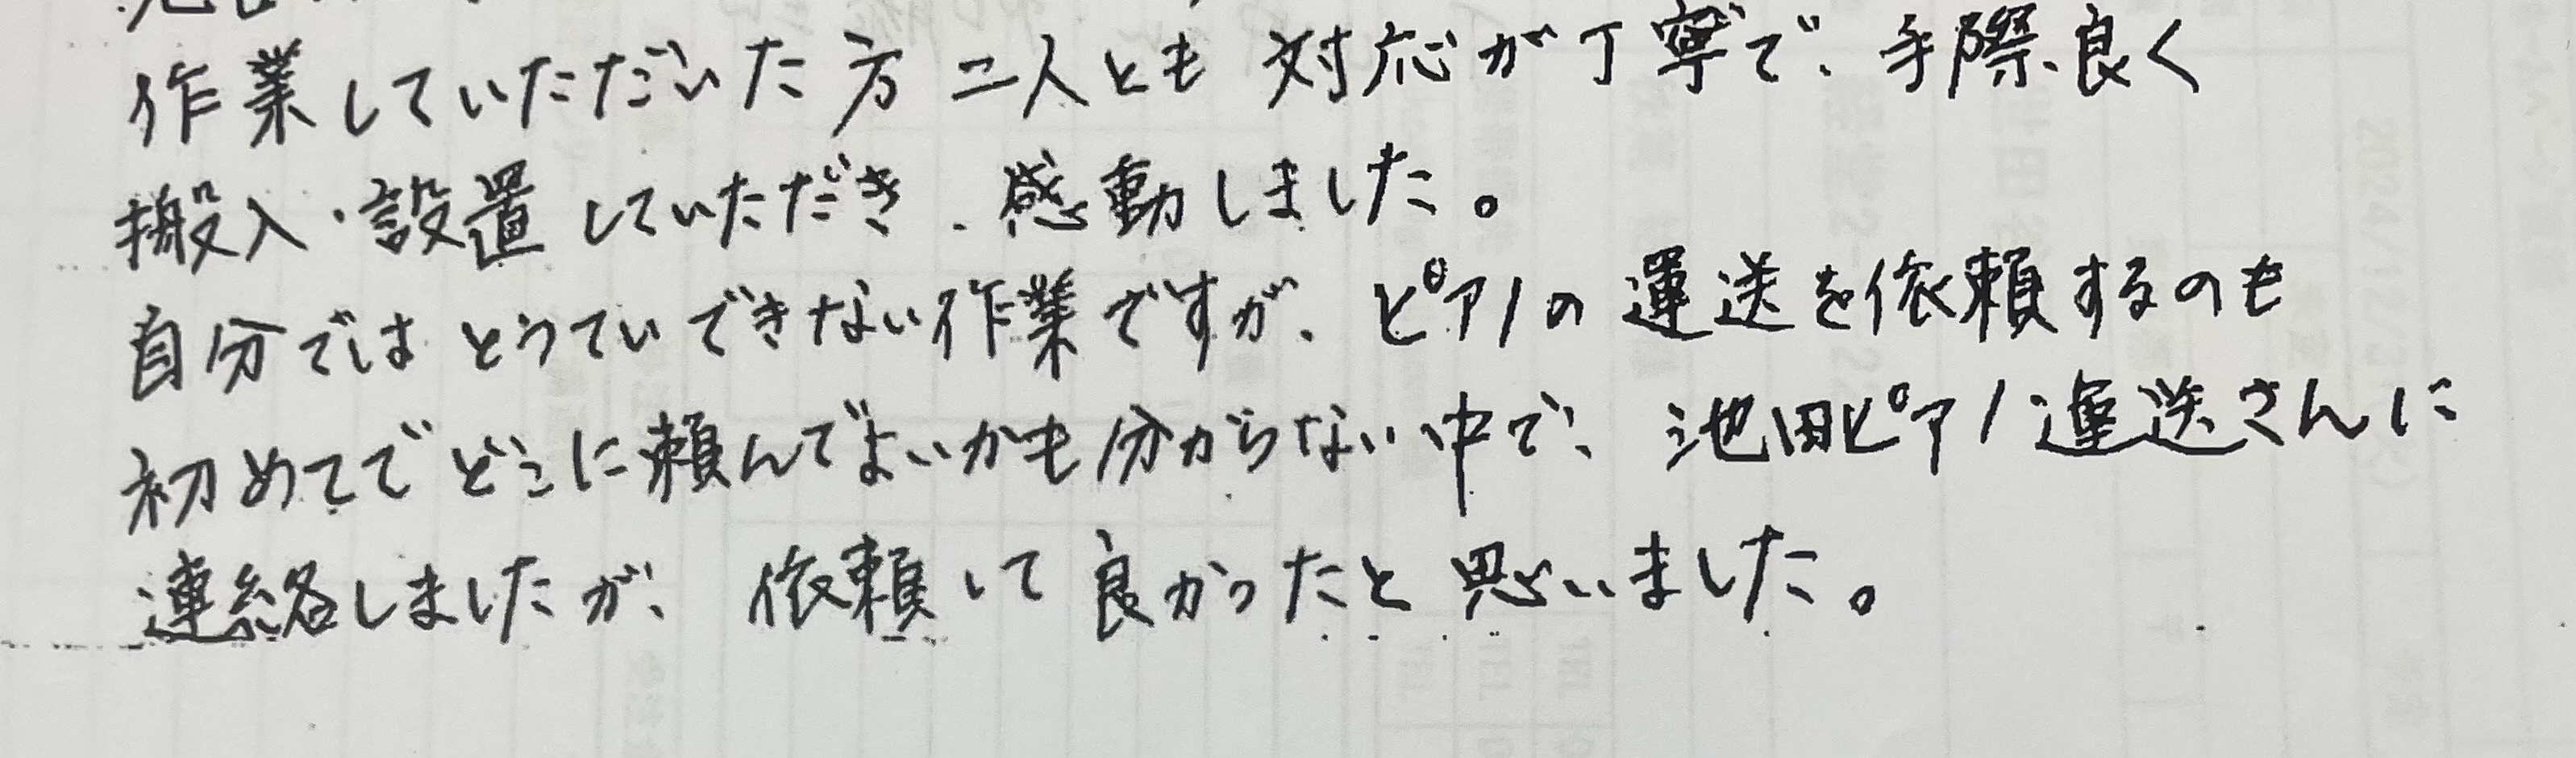 作業していただいた方二人とも対応が丁寧で、手際良く
搬入・設置していただき、感動しました。
自分ではとうていできない作業ですが、ピアノの運送を依頼するのも
初めてでどこに頼んでよいかも分からない中で、池田ピアノ運送さんに
連絡しましたが、依頼して良かったと思いました。